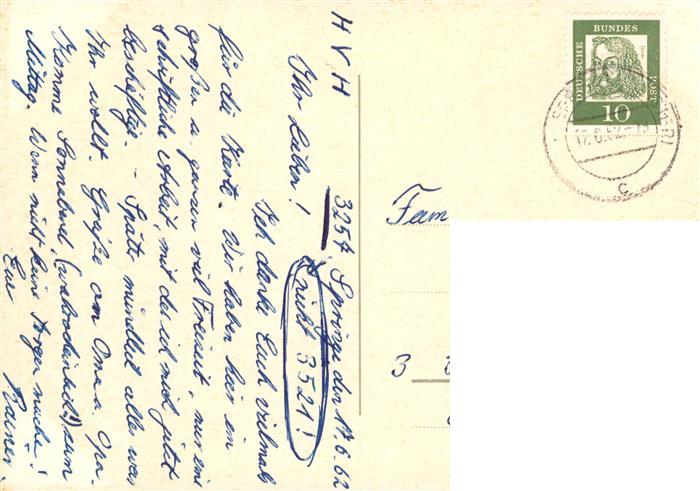 HVH
3254 Springe den 17.6.62
nicht 3521!
Ihr Lieben!
Ich danke Euch vielmals
für die Karte. Wir haben hier im
großen u. ganzen viel Freizeit, nur eine
schriftliche Arbeit, mit der ich mich jetzt
beschäftige. - Später mündlich alles was
Ihr wollt. Grüße an Oma u. Opa.
Komme Sonnabend (wahrscheinlich!) zum
Mittag. Wenn nicht keine Sorgen machen!
Euer
Rainer.
DEUTSCHE BUNDES POST
10
17.6.62
c
Fam
3